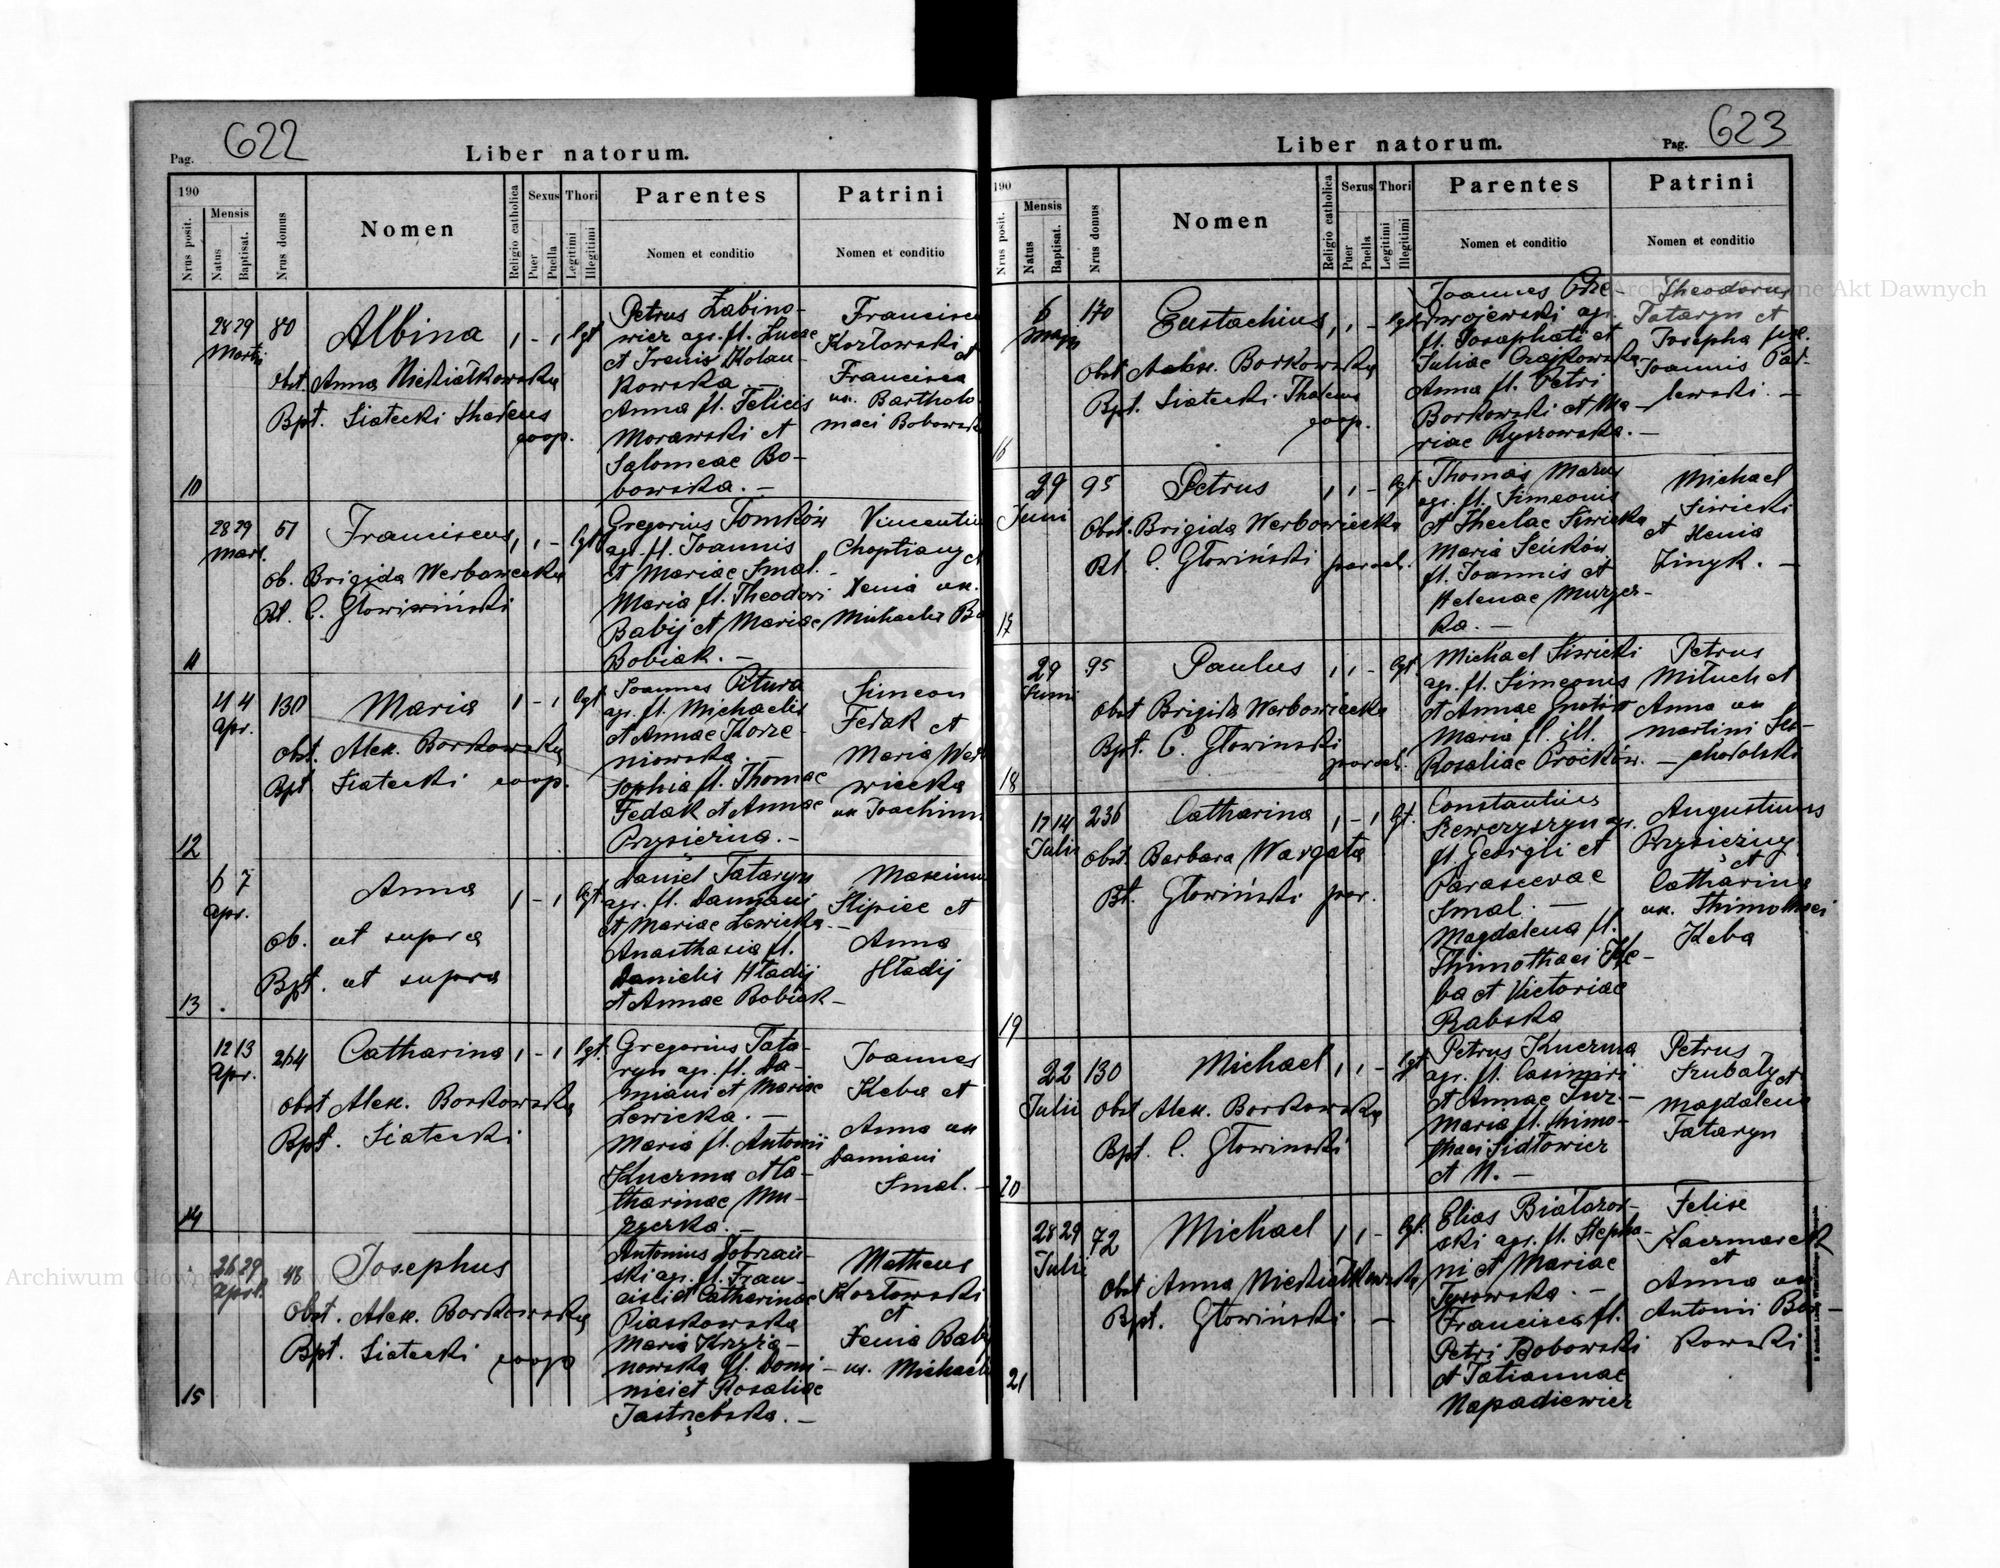 Pag. 622
Liber natorum.
190
Nrus posit.
Mensis
Natus
Baptisat.
Nrus domus
Nomen
Religio catholica
Sexus
Puer
Puella
Thori
Legitimi
Illegitimi
Parentes
Nomen et conditio
Patrini
Nomen et conditio
10
28 29
Martii
80
Albina
1 - 1 lgt
Obst. Anna Niedziałkowska
Bpt. Siatecki Thadeus
coop.
Petrus Żabino-
wicz agr. fl. Lucae
et Irenis Kolan-
kowska
Anna fl. Felicis
Morawski et
Salomeae Bo-
bowska. —
Francisc
Kozłowski et
Francisca
ux. Bartholo-
maei Bobowsk
11
28 29
Mart.
51
Franciscus
1 1 - lgt
ob. Brigida Werbowiecka
Bt. C. Głowiwiński
Gregorius Tomków
agr. fl. Joannis
et Mariae Smal. —
Maria fl. Theodori
Babij et Mariae
Bobiak. —
Vincentiu
Choptiany et
Xenia ux.
Michaelis Ba
12
4 4
Apr.
130
Maria
1 - 1 lgt
Obst. Alex. Borkowska
Bpt. Siatecki coop.
Joannes Pitura
agr. fl. Michaelis
et Annae Korze-
niowska —
Sophia fl. Thomae
Fedak et Annae
Przysiężna. —
Simeon
Fedak et
Maria Wer
wiecka
ux Joachimi
13
6 7
Apr.
Anna
1 - 1 lgt
ob. ut supra
Bpt. ut supra
Daniel Tataryn
agr. fl. Damiani
et Mariae Lewicka. —
Anasthasia fl.
Danielis Hładij
et Annae Bobiak —
Maximus
Slipiec et
Anna
Hładij
14
12 13
Apr.
264
Catharina
1 - 1 lgt.
Obst Alex. Borkowska
Bpt. Siatecki
Gregorius Tata-
ryn agr. fl. Da-
miani et Mariae
Lewicka. —
Maria fl. Antonii
Kuczma et Ca-
tharinae Mu-
rzycka. —
Joannes
Keba et
Anna ux
Damiani
Smal. —
15
26 29
April.
48
Josephus
Obst. Alex. Borkowska
Bpt. Siatecki coop
Antonius Dobrzan-
ski agr. fl. Fran-
cisci et Catharinae
Piaskowska
Maria Krzyża-
nowska fl. Domi-
nici et Rosaliae
Jastrzębska. —
Matheus
Kozłowski
et
Xenia Baby
ux. Michaeli
Pag. 623
Liber natorum.
190
Nrus posit.
Mensis
Natus
Baptisat.
Nrus domus
Nomen
Religio catholica
Sexus
Puer
Puella
Thori
Legitimi
Illegitimi
Parentes
Nomen et conditio
Patrini
Nomen et conditio
16
6
Maji
170
Eustachius
1 1 - lgt
Obst Alex. Borkowska
Bpt. Siatecki Thadeus
coop.
Joannes
agr.
fl. Josaphati et
Juliae Czajkowska
Anna fl. Petri
Borkowski et Ma-
riae Ryszowska. —
Theodorus
Tataryn et
Josepha
Joannis Paw-
lewski. —
17
29
Juni
95
Petrus
1 1 - lgt
Obst. Brigida Werbowiecka
Bt. C. Głowiński paroch.
Thomas Mazur
agr. fl. Simeonis
et Theclae Siwicka
Maria Seńków
fl. Joannis et
Helenae Murzec-
ka. —
Michael
Siwicki
et Xenia
Zinyk. —
18
29
Juni
95
Paulus
1 1 - lgt.
Obst Brigida Werbowiecka
Bpt. C. Głowinski
paroch.
Michael Siwicki
agr. fl. Simeonis
et Annae
Maria fl. ill.
Rosaliae Proćków. —
Petrus
Mituch et
Anna ux
Martini
19
12 14
Julii
236
Catharina
1 - 1 lgt.
Obst. Barbara Wargata
Bt. Głowiński par.
Constantius
Szewczyszyn agr.
fl. Georgii et
Parascevae
Smal. —
Magdalena fl.
Thimothaei Ke-
ba et Victoriae
Babska
Augustinus
Przysiężny
et
Catharina
ux. Thimothaei
Keba
20
22
Julii
130
Michael
1 1 - lgt
Obst Alex. Borkowska
Bpt. C. Głowinski
Petrus Kuczma
agr. fl. Casimiri
et Annae —
Maria fl. Thimo-
thaei Sidłowicz
et N. —
Petrus
Szubały et
Magdalena
Tataryn
21
28 29
Julii
72
Michael
1 1 - lgt.
Obst Anna Niedziałkowska
Bpt. Głowiński. —
Elias Białazor-
ski agr. fl. Stepha-
ni et Mariae
Tysowska. —
Francisca fl.
Petri Bobowski
et Tatiannae
Napadiewicz
Felix
Kaczmarek
et
Anna ux
Antonii Bor-
kowski
Archiwum Główne Akt Dawnych
Archiwum Główne Akt Dawnych